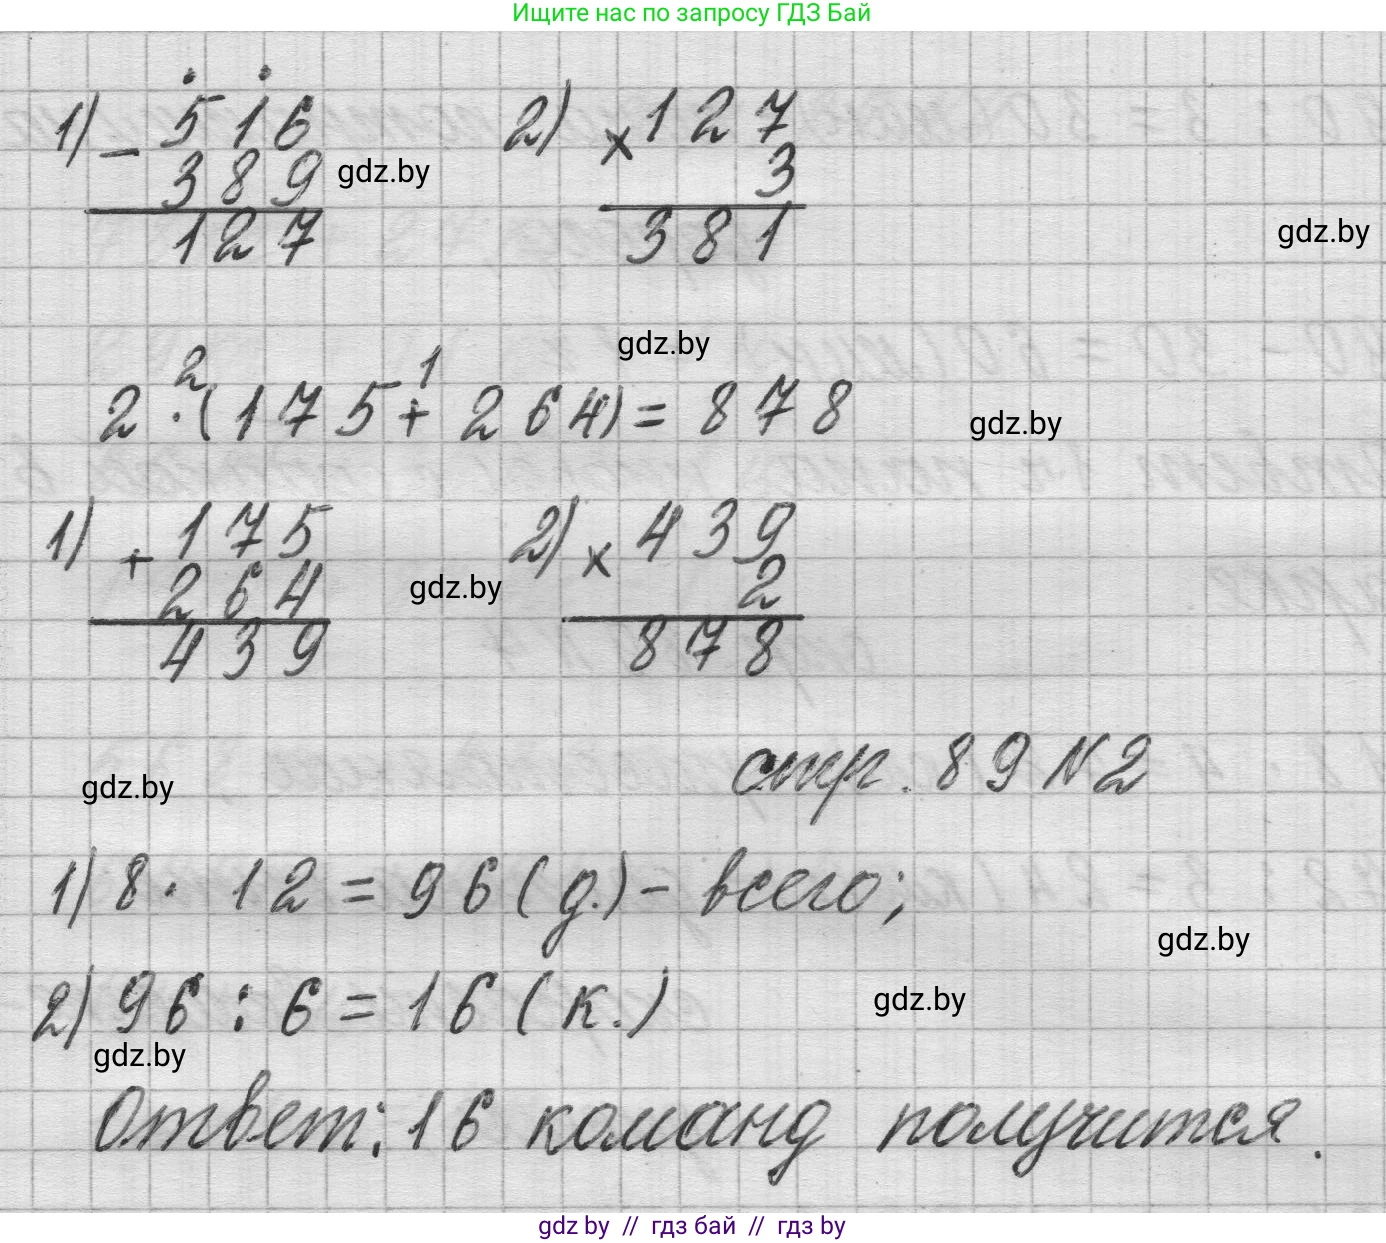 Ищите нас по запросу ГДЗ Бай
1) - 516 2) × 127
389 gdz.by 3
127 381 gdz.by
gdz.by
2 1
2 · (175 + 264) = 878 gdz.by
1) + 175 2) × 439
264 gdz.by 2
439 878
стр. 89 N2
gdz.by
1) 8 · 12 = 96 (д.) - всего;
gdz.by
2) 96 : 6 = 16 (к.) gdz.by
gdz.by
Ответ: 16 команд получится.
gdz.by // гдз бай // гдз by